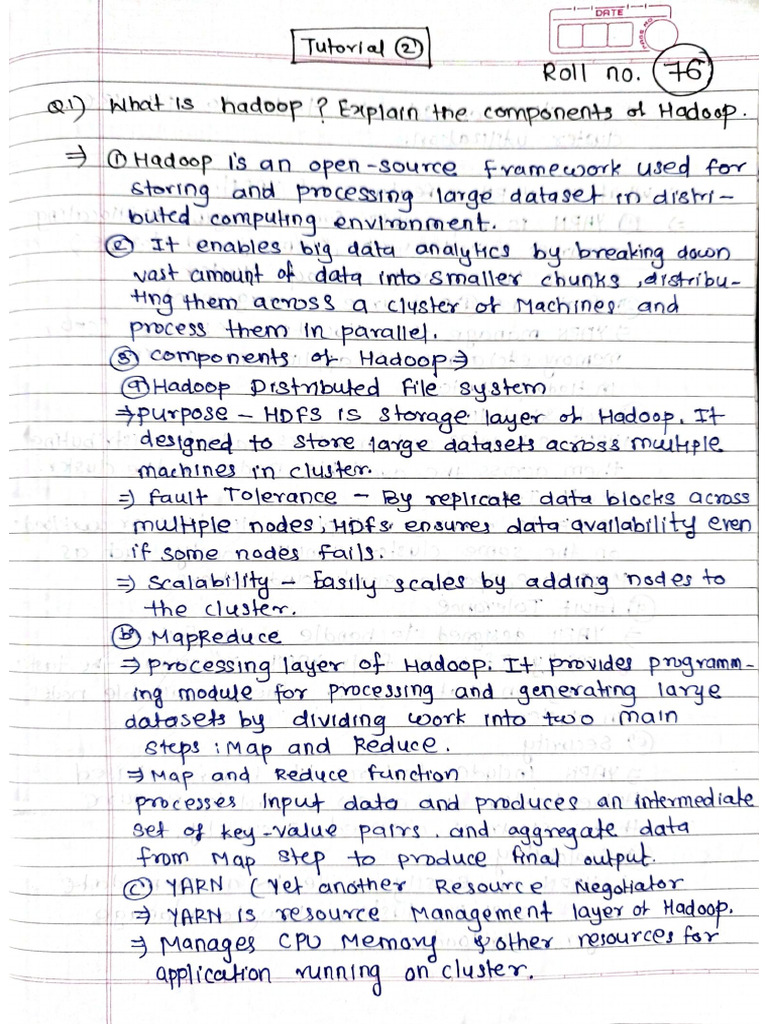 Tutorial ②
DATE
Roll no. 76
Q1) What is hadoop? Explain the components of Hadoop.
⇒ ① Hadoop is an open-source framework used for
storing and processing large dataset in distri-
buted computing environment.
② It enables big data analytics by breaking down
vast amount of data into smaller chunks, distribu-
ting them across a cluster of Machines and
process them in parallel.
③ components of Hadoop ⇒
ⓐ Hadoop Distributed file system
⇒ purpose - HDFS is storage layer of Hadoop. It
designed to store large datasets across multiple
machines in cluster.
⇒ fault Tolerance - By replicate data blocks across
multiple nodes, HDFS ensures data availability even
if some nodes fails.
⇒ scalability - Easily scales by adding nodes to
the cluster.
ⓑ MapReduce
⇒ processing layer of Hadoop. It provides programm-
ing module for processing and generating large
datasets by dividing work into two main
steps : Map and Reduce.
⇒ Map and Reduce function
processes input data and produces an intermediate
set of key-value pairs. and aggregate data
from Map step to produce final output.
ⓒ YARN (Yet another Resource Negotiator
⇒ YARN is resource Management layer of Hadoop.
⇒ Manages CPU Memory & other resources for
application running on cluster.